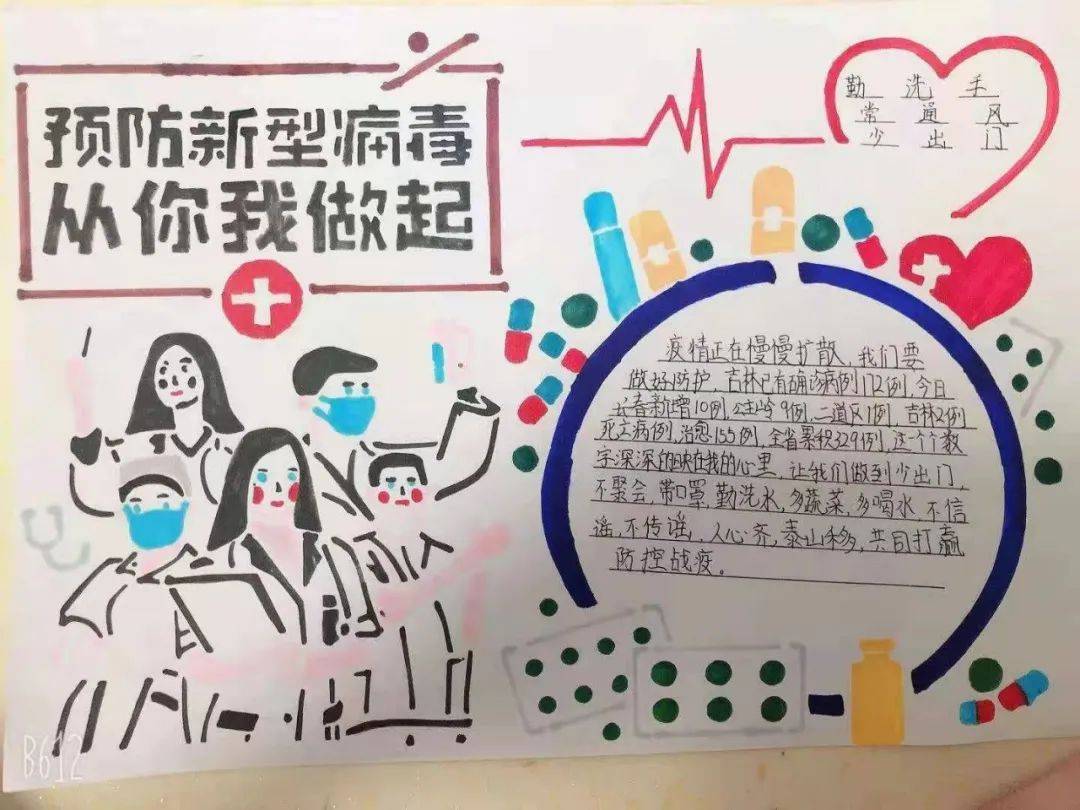 预防新型病毒
从你我做起
勤 洗 手
常 通 风
少 出 门
疫情正在慢慢扩散，我们要
做好防护，吉林已有确诊病例172例，今日
长春新增10例，公主岭9例，二道区1例，吉林2例
死亡病例，治愈155例，全省累积329例，这一个个数
字深深的映在我的心里，让我们做到少出门，
不聚会，带口罩，勤洗水，多蔬菜，多喝水，不信
谣，不传谣，人心齐，泰山移，共同打赢
防控战疫。
B612